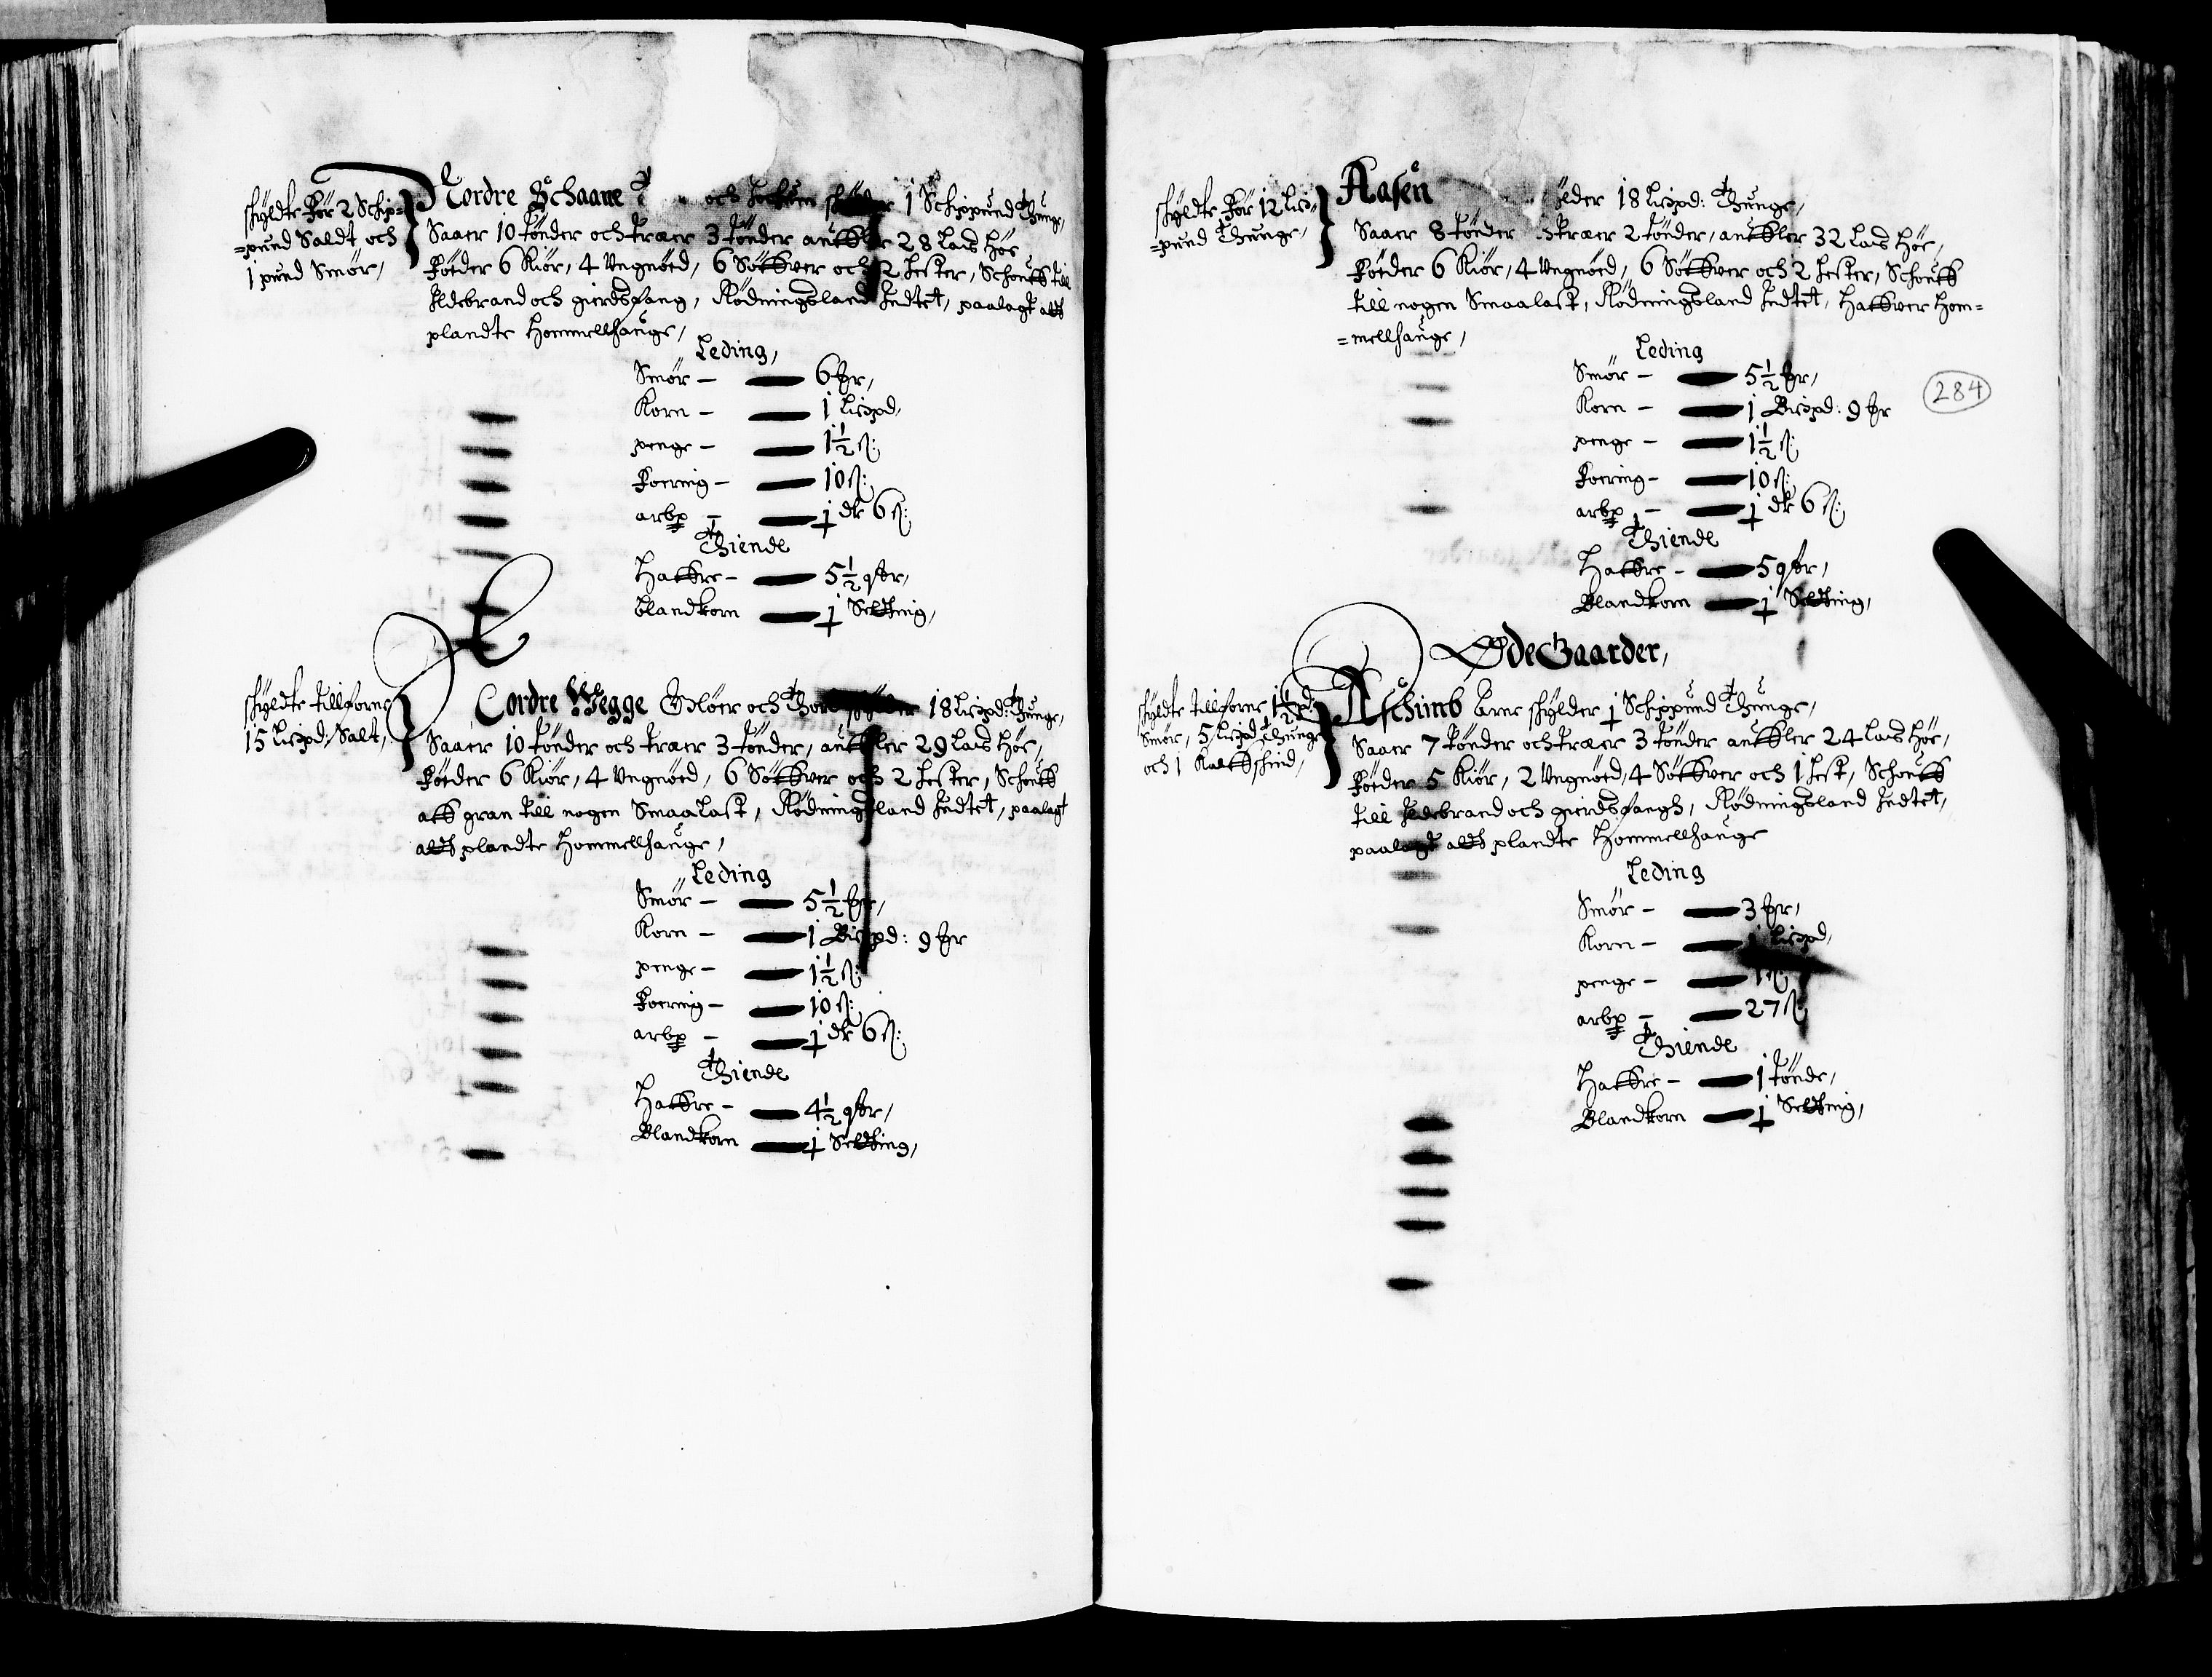 skyldte før 2 Schip=
=pund Saldt och
1 pund Smør,
Nordre Schaane och Jochum skylder 1 Schippund Thunge,
Saaer 10 tønder och træer 3 tønder aufkler 28 Lais Høe
Føeder 6 Kiør, 4 Ungnøed, 6 Søffver och 2 Hester, Schouff till
Ildebrand och gierdsfang, Rødningsland Indtet, paalagt att
plandte Hommellhauge,
Leding,
Smør – 6 ßr,
Korn – 1 Lispd,
penge – 1½ s:
Foering – 10 s:
arbp – 1 dr 6 s:
Thiende
Haffre – 5½ qter,
blandkorn 1 Setting,
skyldte tillforne
15 Lispd: Salt,
Nordre Wegge Gloer och Thor skylder 18 Lispd: Thunge,
Saaer 10 tønder och træer 3 tønder, aufkler 29 Lais Høe,
Føeder 6 Kiør, 4 Ungnøed, 6 Søffver och 2 Hester, Schouff
aff gran till nogen Smaalast, Rødningsland Indtet, paalagt
att plandte Hommellhauge,
Leding
Smør – 5½ ßr,
Korn – 1 Bispd: 9 ßr
penge – 1½ s:
Foering – 10 s:
arbp – 1 dr 6 s:
Thiende
Haffre – 4½ qter,
Blandkorn 1 Setting,
skyldte før 12 Lis=
=pund Thunge,
Aasen ylder 18 Lispd: Thunge,
Saaer 8 tønder træer 2 tønder, aufkler 32 Lais Høe,
Føeder 6 Kiør, 4 Ungnøed, 6 Søffver och 2 Hester, Schouff
till nogen Smaalast, Rødningsland Indtet, Haffver Hom=
=mellhauge,
Leding
Smør – 5½ ßr,
284
Korn – 1 Bispd: 9 ßr
penge – 1½ s:
Foering – 10 s:
arbp – 1 dr 6 s:
Thiende
Haffre – 5 qter,
Blandkorn 1 Setting,
ØdeGaarder,
skyldte tillforne 1½ pd:
Smør, 5 Lispd Thunge
och 1 Kalffskind,
Aschimb Arne skylder 1 Schippund Thunge,
Saaer 7 tønder och træer 3 tønder aufkler 24 Lais Høe,
Føeder 5 Kiør, 2 Ungnøed, 4 Søffver och 1 Hest, Schouff
till Ildebrand och gierdsfangh, Rødningsland Indtet,
paalagt att plandte Hommellhauge
Leding
Smør – 3 ßr,
Korn – 1 Lispd,
penge – 1 s:
arbp – 27 s:
Thiende
Haffre – 1 tønde,
Blandkorn 1 Setting,